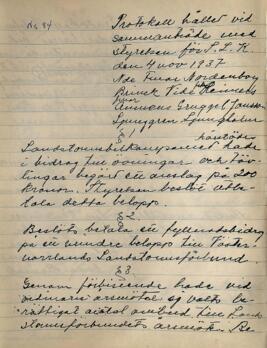 No 84
Protokoll hållet vid
sammanträde med
styrelsen för S. L. K.
den 4 nov 1937
Nde Fruar Nordenborg
Brinck
Ljunggren Ljungholm
§ 1
Landstormsbefälsavd hade
i bidrag till övningar och täv-
lingar begärt ett anslag på 200
kronor. Styrelsen beslöt att be-
tala detta belopp.
§ 2.
Beslöts betala en fyllnadsbidrag
på en mindre belopp till Väster-
norrlands Landstormsförbund.
§ 3
Genom förbiseende hade vid
ordinarie årsmötet ej valts be-
rättigat antal ombud till Land-
stormsförbundets årsmöte. Be